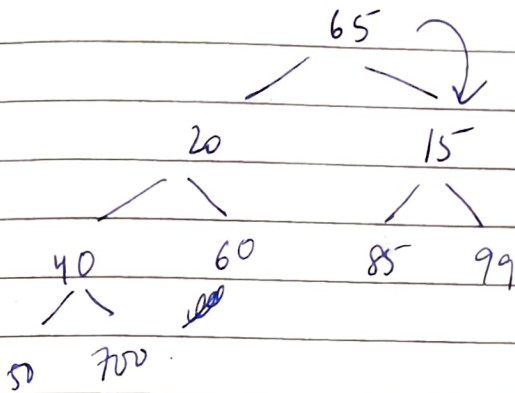 65
20 15
40 60 85 99
50 700